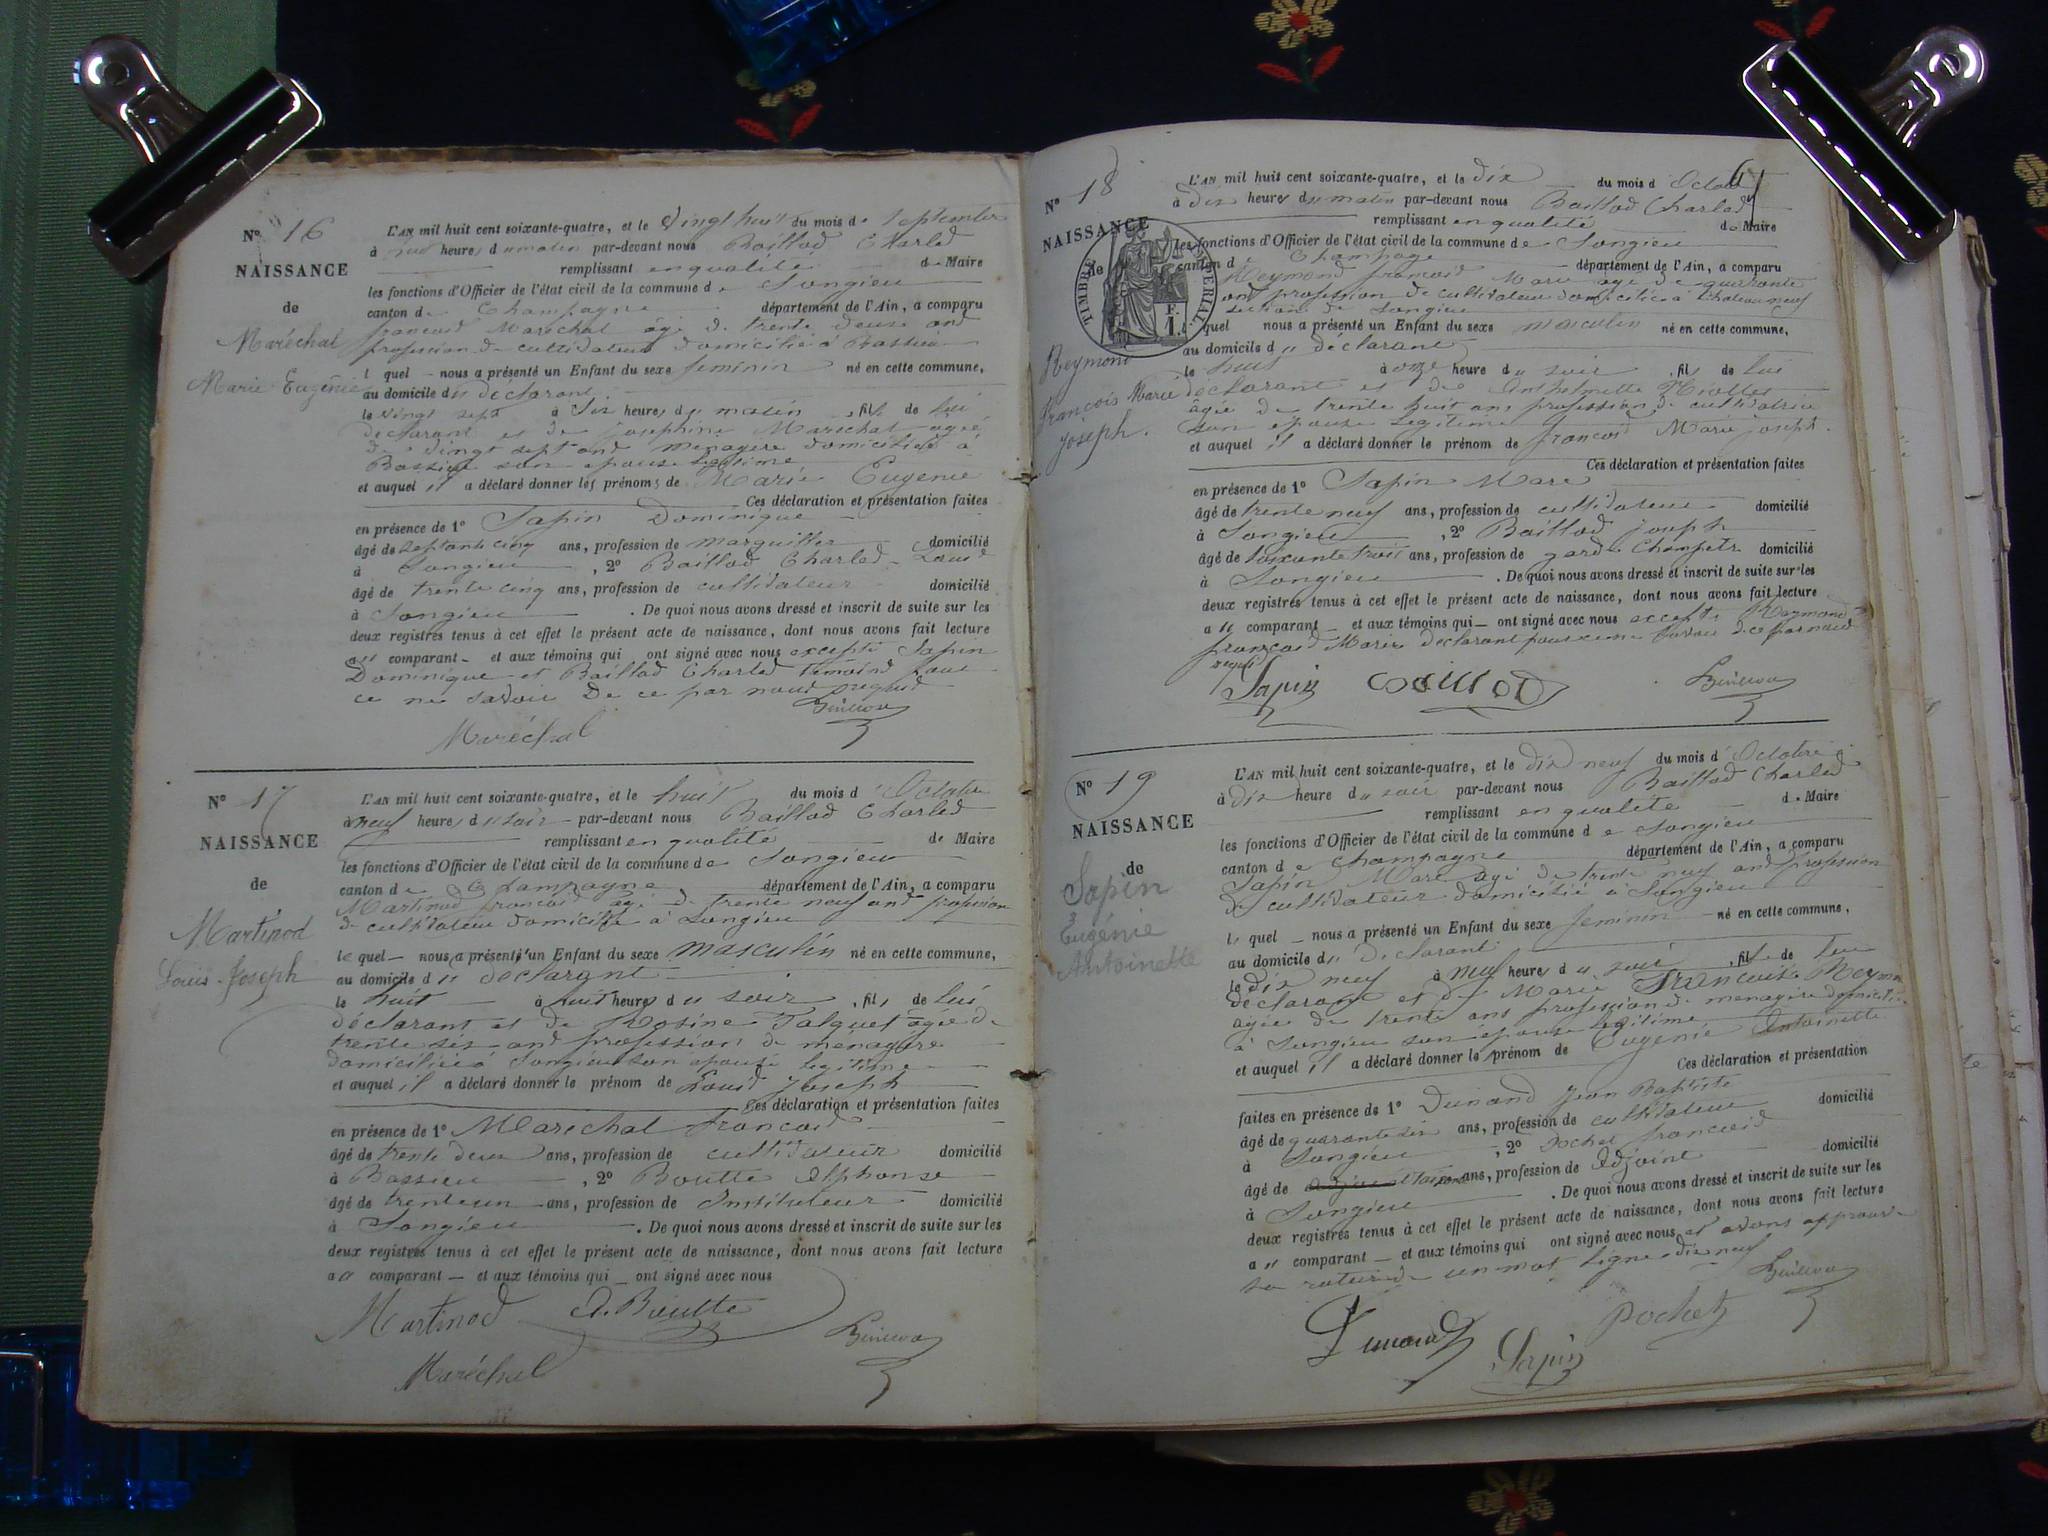 N° 16
NAISSANCE
de
Maréchal
Marie Eugénie
L'AN mil huit cent soixante-quatre, et le vingt huit du mois de Septembre
à heures du matin par-devant nous Baillod Charles
remplissant en qualité de Maire
les fonctions d'Officier de l'état civil de la commune de Songieu
canton de Champagne département de l'Ain, a comparu
francois Maréchal âgé de trente deux ans
profession de cultivateur domicilié à Bassieu
l quel nous a présenté un Enfant du sexe feminin né en cette commune,
au domicile du déclarant
le vingt sept à Six heures du matin , fils de lui
déclarant et de josephine Maréchal agée
de vingt sept ans menagere domiciliée à
Bassieu son epouse legitime
et auquel il a déclaré donner les prénoms de Marie Eugenie
Ces déclaration et présentation faites
en présence de 1° Sapin Dominique
âgé de septante cinq ans, profession de marguiller domicilié
à Songieu , 2° Baillod Charles Louis
âgé de trente cinq ans, profession de cultivateur domicilié
à Songieu . De quoi nous avons dressé et inscrit de suite sur les
deux registres tenus à cet effet le présent acte de naissance, dont nous avons fait lecture
au comparant et aux témoins qui ont signé avec nous excepté Sapin
Dominique et Baillod Charles témoins pour
ce ne savoir De ce par nous requis
Maréchal
N° 17
NAISSANCE
de
Martinod
Louis Joseph
L'AN mil huit cent soixante-quatre, et le huit du mois d'Octobre
à neuf heures du soir par-devant nous Baillod Charles
remplissant en qualité de Maire
les fonctions d'Officier de l'état civil de la commune de Songieu
canton de Champagne département de l'Ain, a comparu
Martinod francois agé de trente neuf ans profession
de cultivateur domicilié à Songieu
le quel nous a présenté un Enfant du sexe masculin né en cette commune,
au domicile du déclarant
le huit à huit heures du soir , fils de lui
déclarant et de Rosine Talquet agée de
trente six ans profession de menagere
domiciliée à Songieu son epouse legitime
et auquel il a déclaré donner le prénom de Louis Joseph
Ces déclaration et présentation faites
en présence de 1° Marechal francois
âgé de trente deux ans, profession de cultivateur domicilié
à Bassieu , 2° Boutte Alphonse
âgé de trente un ans, profession de Instituteur domicilié
à Songieu . De quoi nous avons dressé et inscrit de suite sur les
deux registres tenus à cet effet le présent acte de naissance, dont nous avons fait lecture
au comparant et aux témoins qui ont signé avec nous
Martinod A. Boutte
Maréchal
N° 18
NAISSANCE
de
Reymond
François Marie
joseph.
TIMBRE IMPERIAL
1 F.
L'AN mil huit cent soixante-quatre, et le dix du mois d Octobre
à dix heures du matin par-devant nous Baillod Charles
remplissant en qualité de Maire
les fonctions d'Officier de l'état civil de la commune de Songieu
canton de Champagne département de l'Ain, a comparu
Reymond francois Marie age de quarante
ans profession de cultivateur domicilié à Chateauneuf
section de Songieu
quel nous a présenté un Enfant du sexe masculin né en cette commune,
au domicile du déclarant
le huit à onze heure du soir , fils de lui
déclarant et de Anthelmette
âgée de trente huit ans profession de cultivatrice
son épouse legitime
et auquel il a déclaré donner le prénom de francois Marie joseph.
Ces déclaration et présentation faites
en présence de 1° Sapin Marc
âgé de trente neuf ans, profession de cultivateur domicilié
à Songieu , 2° Baillod joseph
âgé de soixante trois ans, profession de garde Champetre domicilié
à Songieu . De quoi nous avons dressé et inscrit de suite sur les
deux registres tenus à cet effet le présent acte de naissance, dont nous avons fait lecture
au comparant et aux témoins qui ont signé avec nous excepté Reymond
francois Marie déclarant pour ce ne savoir de ce par nous
requis
Sapin Baillod
N° 19
NAISSANCE
de
Sapin
Eugénie
Antoinette
L'AN mil huit cent soixante-quatre, et le dix neuf du mois d'Octobre
à dix heure du soir par-devant nous Baillod Charles
remplissant en qualité de Maire
les fonctions d'Officier de l'état civil de la commune de Songieu
canton de Champagne département de l'Ain, a comparu
Sapin Marc agé de trente neuf ans profession
de cultivateur domicilié à Songieu
le quel nous a présenté un Enfant du sexe feminin né en cette commune,
au domicile du Déclarant
le dix neuf à neuf heures du soir , fil de lui
déclarant et de Marie Francoise Reymond
agée de trente ans profession de menagère domiciliée
à Songieu son épouse legitime
et auquel il a déclaré donner le prénom de Eugenie Antoinette
Ces déclaration et présentation
faites en présence de 1° Dunand Jean Baptiste
âgé de quarante six ans, profession de cultivateur domicilié
à Songieu , 2° Pochet francois
âgé de ans, profession de Adjoint domicilié
à Songieu . De quoi nous avons dressé et inscrit de suite sur les
deux registres tenus à cet effet le présent acte de naissance, dont nous avons fait lecture
au comparant et aux témoins qui ont signé avec nous et avons approuvé
la rature de un mot ligne dix neuf
Dunand Sapin Pochet